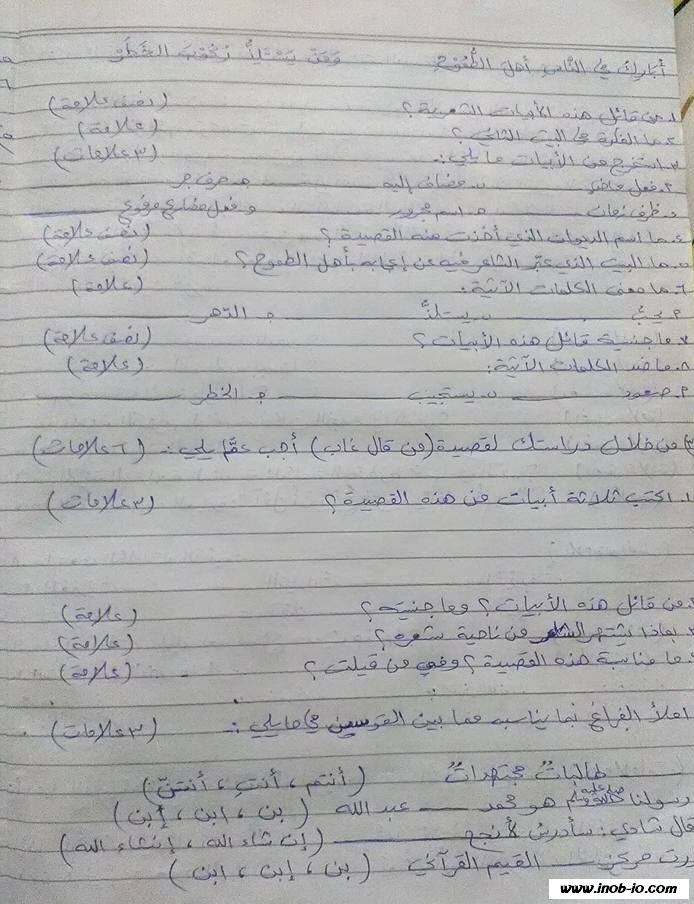 أبارك في الناس أهل الطموح ومن يستلذ ركوب الخطر
١. من قائل هذه الأبيات الشعرية؟ (نصف علامة)
٢. ما الفكرة في البيت الثاني؟ (علامة)
٣. استخرج من الأبيات ما يلي:- (٣ علامات)
٢. فعل ماضٍ ب. مضاف إليه جـ. حرف جر
د. ظرف زمان هـ. اسم مجرور و. فعل مضارع مرفوع
٤. ما اسم الديوان الذي أخذت منه القصيدة؟ (نصف علامة)
٥. ما البيت الذي عبّر الشاعر فيه عن إعجابه بأهل الطموح؟ (نصف علامة)
٦. ما معنى الكلمات الآتية: (علامة)
ب. يستلذُّ جـ. الدّهر
٧. ما جنسية قائل هذه الأبيات؟ (نصف علامة)
٨. ما ضد الكلمات الآتية: (علامة)
٢. صعود ب. يستجيب جـ. الخطر
٣) من خلال دراستك لقصيدة (من قال غاب) أجب عمّا يلي:- (٦ علامات)
١. اكتب ثلاثة أبيات من هذه القصيدة؟ (٣ علامات)
٢. من قائل هذه الأبيات؟ وما جنسيته؟ (علامة)
٣. بماذا يشتهر الشاعر من ناحية شعره؟ (علامة)
٤. ما مناسبة هذه القصيدة؟ وفي من قيلت؟ (علامة)
املأ الفراغ بما يناسب مما بين القوسين في ما يلي:- (٣ علامات)
طالباتٌ مجتهداتٌ (أنتم ، أنتِ ، أنتنّ)
رسولنا ﷺ هو محمد عبد الله (بن ، ابن ، إبن)
قال شادي: سأدرس لأنجح (إن شاء الله ، إنشاء الله)
مركز القيم القرآني (بن ، إبن ، ابن)
www.inob-io.com